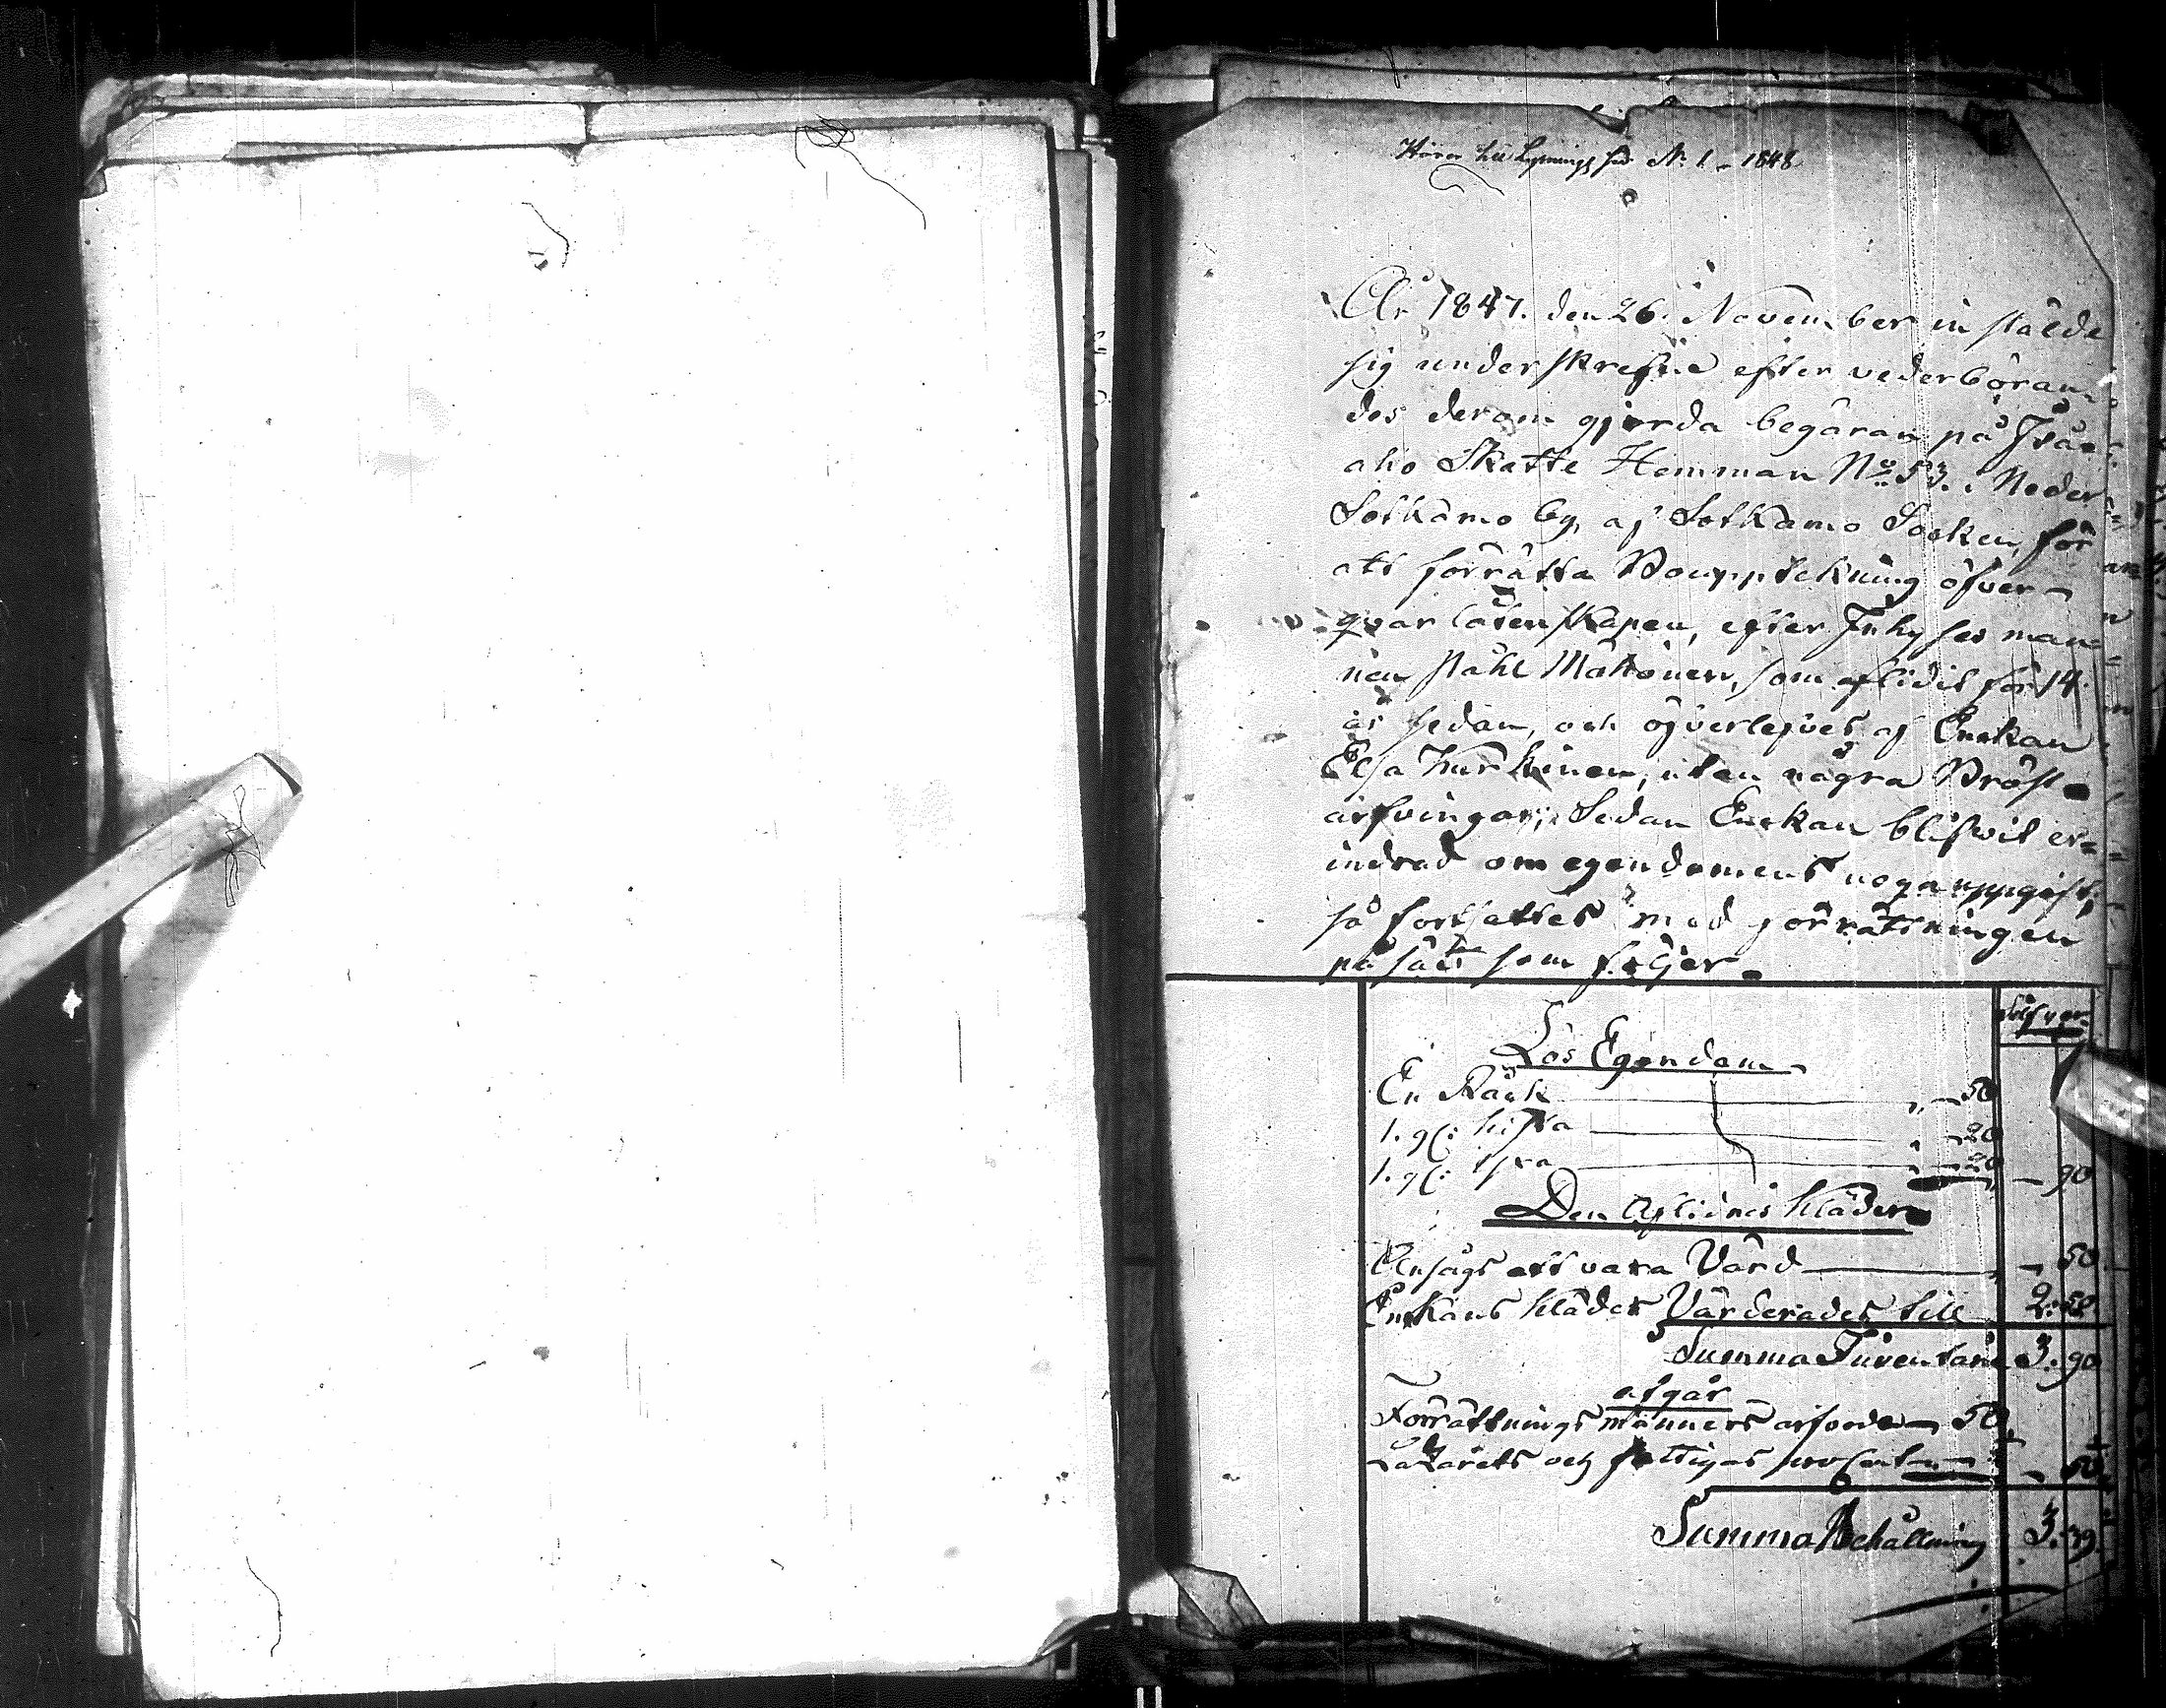 Hörer till N: 1 - 1848
År 1847. den 26. November in stälde
sig underskrefne efter vederböran
des derom gjorda begäran på
aho Skatte Hemman No 53. i Neder
Sotkamo by, af Sotkamo Socken, för
att förrätta Boupptekning öfver
qvarlåtenskapen, efter Inhyses man
nen Påhl Mätönen, som aflidit för 14
år sedan, och öfverlefves af Enkan
Elsa Kurkinen, utan några Bröst
arfvingar; Sedan Enkan blifwit er=
indrad om egendomens noga uppgift,
så fortsattes med förrättningen
på sätt som följer.
Silfver
Lös Egendom
En Räck 50
1. gl: kista 20
1. gl: 20 90
Den Aflidnes kläder
Ansågs att vara Värd 50
Enkans kläder Värderades till 2: 50
Summa Inventarie 3. 90
afgår
Förrättnings männers arfvode 50
Lazarets och fattigas procent 1 51
Summa Behållning 3. 39.